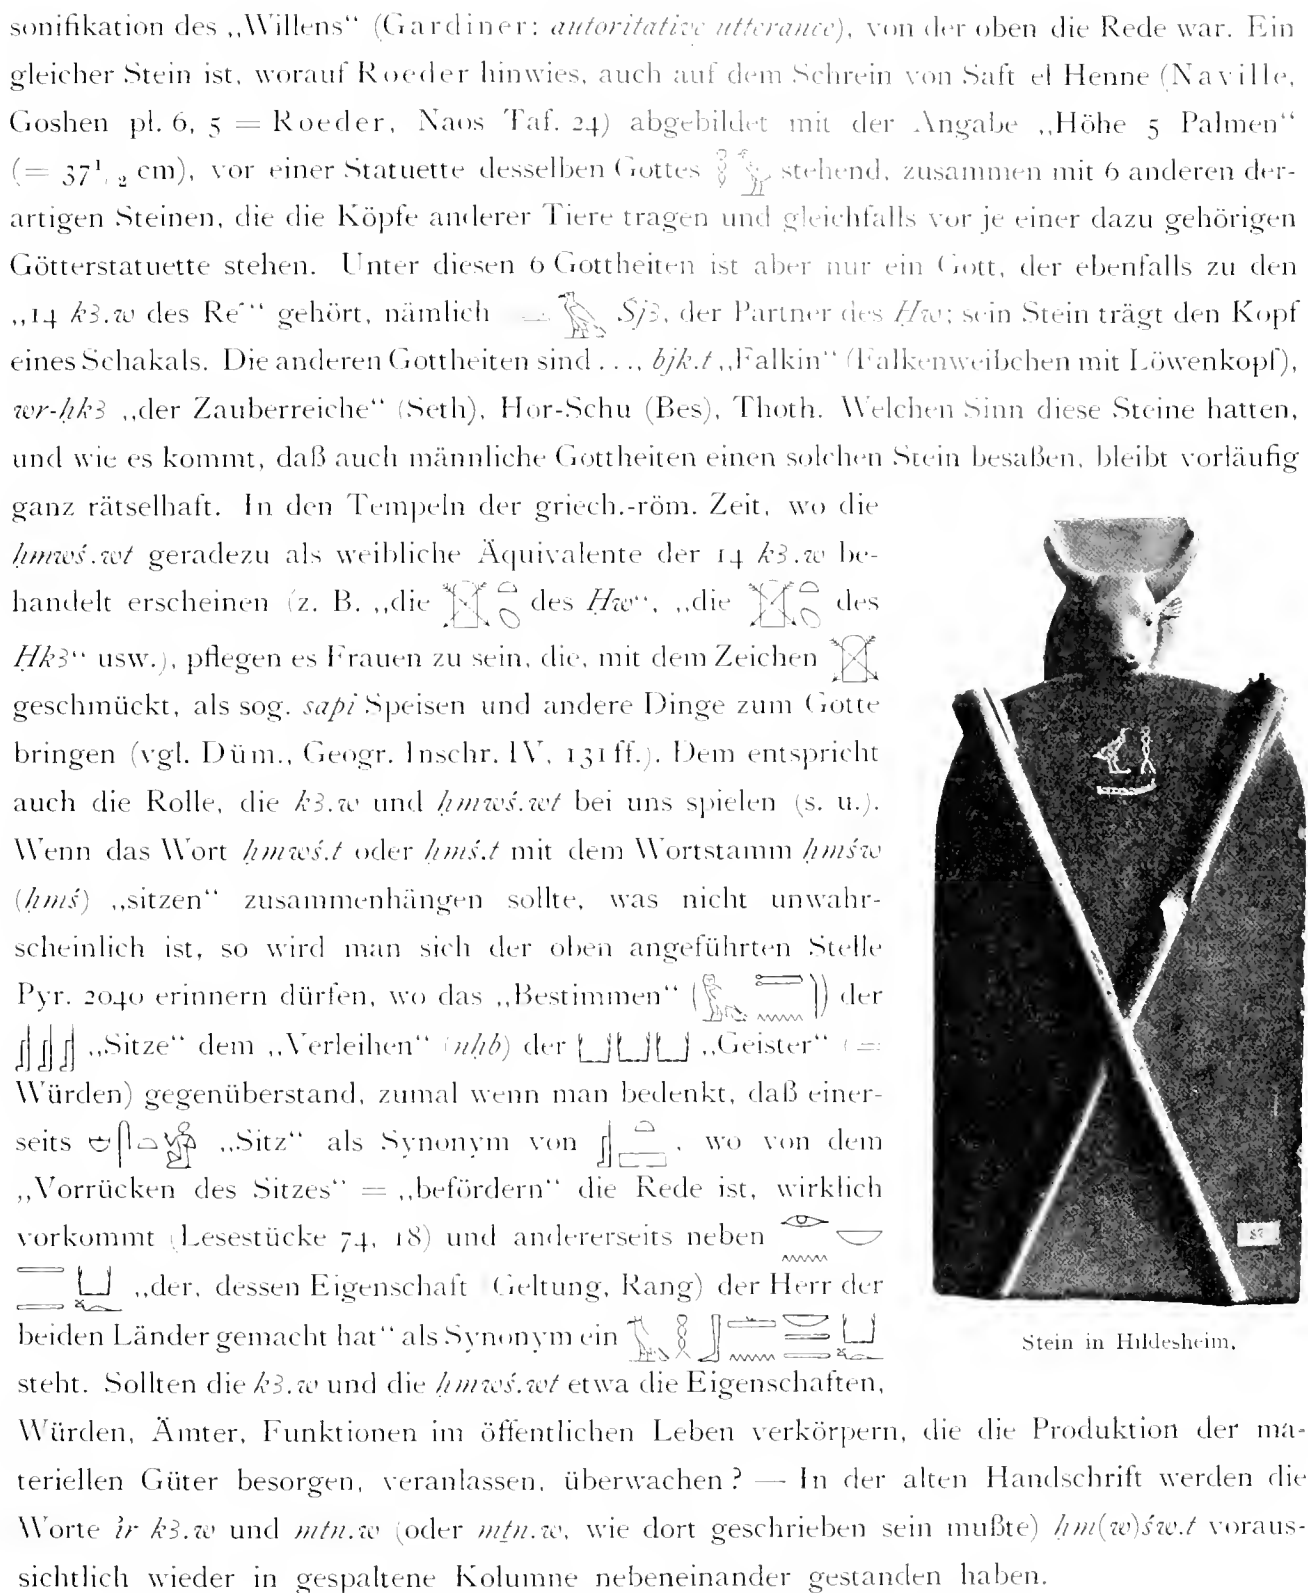 sonifikation des „Willens“ (Gardiner: autoritative utterance), von der oben die Rede war. Ein
gleicher Stein ist, worauf Roeder hinwies, auch auf dem Schrein von Saft el Henne (Naville,
Goshen pl. 6, 5 = Roeder, Naos Taf. 24) abgebildet mit der Angabe „Höhe 5 Palmen“
(= 37 1/2 cm), vor einer Statuette desselben Gottes stehend, zusammen mit 6 anderen der-
artigen Steinen, die die Köpfe anderer Tiere tragen und gleichfalls vor je einer dazu gehörigen
Götterstatuette stehen. Unter diesen 6 Gottheiten ist aber nur ein Gott, der ebenfalls zu den
„14 kꜣ.w des Reʿ“ gehört, nämlich Sjꜣ, der Partner des Ḥw; sein Stein trägt den Kopf
eines Schakals. Die anderen Gottheiten sind . . ., bjk.t „Falkin“ (Falkenweibchen mit Löwenkopf),
wr-ḥkꜣ „der Zauberreiche“ (Seth), Hor-Schu (Bes), Thoth. Welchen Sinn diese Steine hatten,
und wie es kommt, daß auch männliche Gottheiten einen solchen Stein besaßen, bleibt vorläufig
ganz rätselhaft. In den Tempeln der griech.-röm. Zeit, wo die
ḥmwś.wt geradezu als weibliche Äquivalente der 14 kꜣ.w be-
handelt erscheinen (z. B. „die des Ḥw“, „die des
Ḥkꜣ“ usw.), pflegen es Frauen zu sein, die, mit dem Zeichen
geschmückt, als sog. sapi Speisen und andere Dinge zum Gotte
bringen (vgl. Düm., Geogr. Inschr. IV, 131 ff.). Dem entspricht
auch die Rolle, die kꜣ.w und ḥmwś.wt bei uns spielen (s. u.).
Wenn das Wort ḥmwś.t oder ḥmś.t mit dem Wortstamm ḥmśw
(ḥmś) „sitzen“ zusammenhängen sollte, was nicht unwahr-
scheinlich ist, so wird man sich der oben angeführten Stelle
Pyr. 2040 erinnern dürfen, wo das „Bestimmen“ ( ) der
„Sitze“ dem „Verleihen“ (nḥb) der „Geister“ (=
Würden) gegenüberstand, zumal wenn man bedenkt, daß einer-
seits „Sitz“ als Synonym von , wo von dem
„Vorrücken des Sitzes“ = „befördern“ die Rede ist, wirklich
vorkommt (Lesestücke 74, 18) und andererseits neben
„der, dessen Eigenschaft (Geltung, Rang) der Herr der
beiden Länder gemacht hat“ als Synonym ein
steht. Sollten die kꜣ.w und die ḥmwś.wt etwa die Eigenschaften,
Würden, Ämter, Funktionen im öffentlichen Leben verkörpern, die die Produktion der ma-
teriellen Güter besorgen, veranlassen, überwachen? — In der alten Handschrift werden die
Worte ỉr kꜣ.w und mtn.w (oder mṯn.w, wie dort geschrieben sein mußte) ḥm(w)św.t voraus-
sichtlich wieder in gespaltene Kolumne nebeneinander gestanden haben.
87
Stein in Hildesheim.